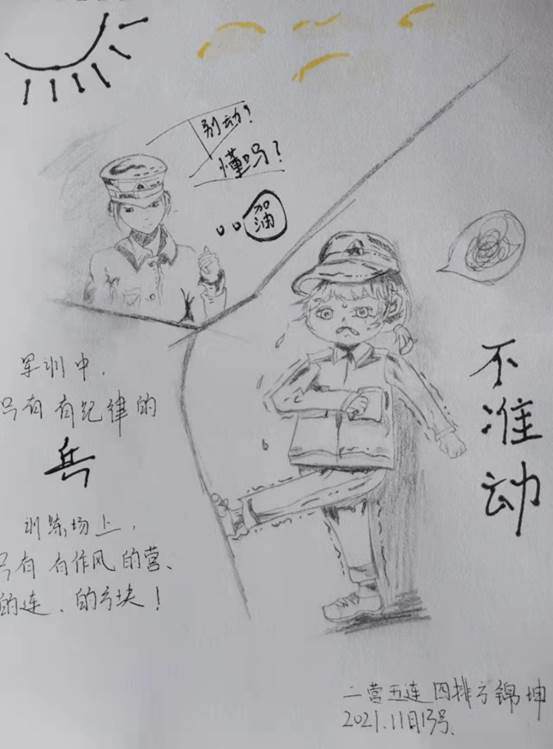 别动？
懂吗？
加
油
不
准
动
军训中，
只有有纪律的
兵
训练场上，
只有有作风的营、
的连、的方块！
二营五连四排方锦坤
2021.11日13号.